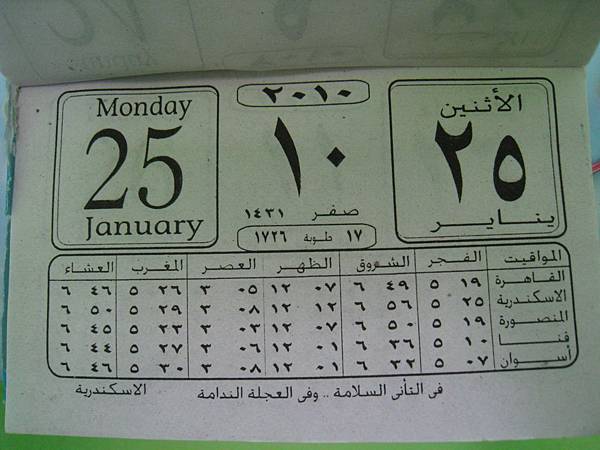 ٢٠١٠
الأثنين
٢٥
يناير
١٠
صفر ١٤٣١
١٧ طوبة ١٧٢٦
Monday
25
January
المواقيت الفجر الشروق الظهر العصر المغرب العشاء
القاهرة ١٩ ٥ ٤٩ ٦ ٠٧ ١٢ ٠٥ ٣ ٢٦ ٥ ٤٦ ٦
الاسكندرية ٢٥ ٥ ٥٦ ٦ ١٢ ١٢ ٠٨ ٣ ٢٩ ٥ ٥٠ ٦
المنصورة ١٩ ٥ ٥٠ ٦ ٠٧ ١٢ ٠٣ ٣ ٢٣ ٥ ٤٥ ٦
قنا ١٠ ٥ ٣٦ ٦ ٠١ ١٢ ٠٦ ٣ ٢٧ ٥ ٤٤ ٦
أسوان ٠٧ ٥ ٣٢ ٦ ٠١ ١٢ ٠٨ ٣ ٣٠ ٥ ٤٦ ٦
فى التأنى السلامة .. وفى العجلة الندامة الاسكندرية